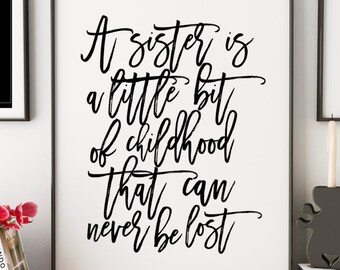 A sister is
a little bit
of childhood
that can
never be lost